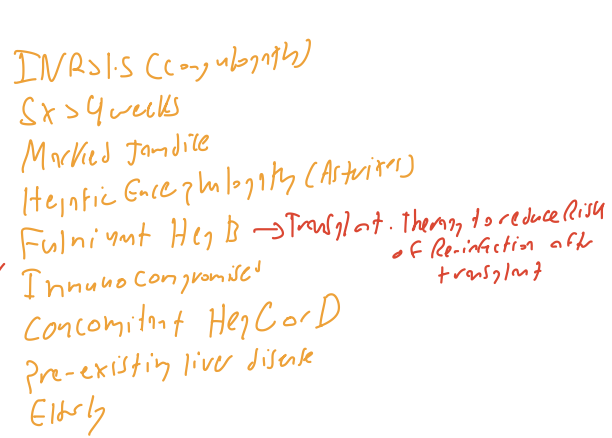 INR>1.5 (Coagulopathy)
Sx > 4 weeks
Marked Jaundice
Hepatic Encephalopathy (Asterixes)
Fulminant Hep B → Transplant. Therapy to reduce Risk
of Re-infection after
transplant
Immunocompromised
Concomitant Hep C or D
Pre-existing liver disease
Elderly